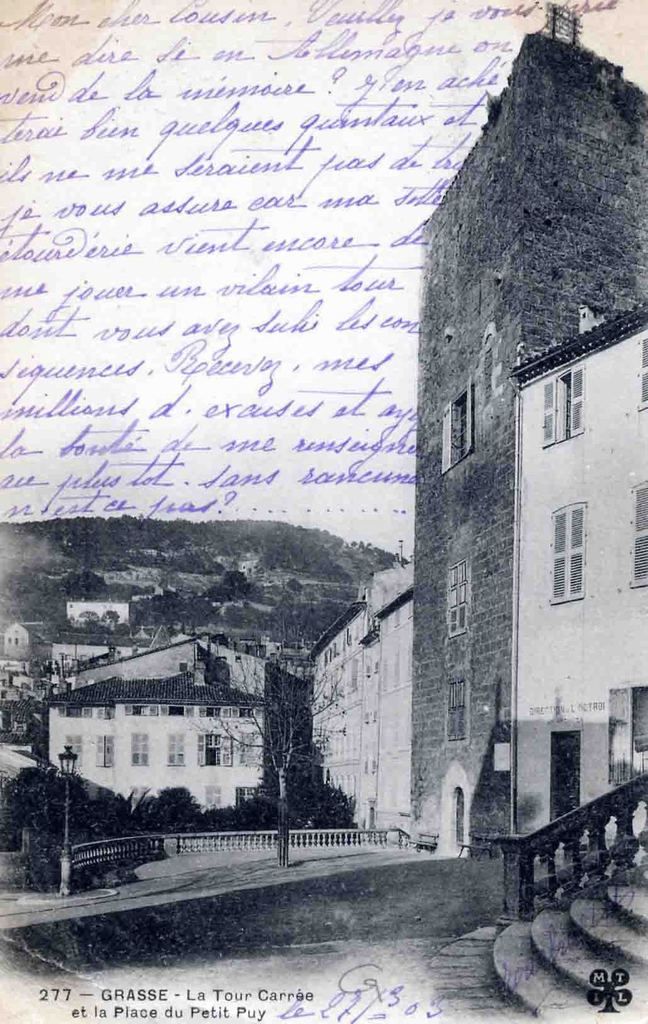 Mon cher Cousin, Veuillez je vous prie
me dire si en Allemagne on
vend de la mémoire? J'en achè
terai bien quelques quintaux et
ils ne me seraient pas de tro
je vous assure car ma folle
étourderie vient encore de
me jouer un vilain tour
dont vous avez subi les con
séquences. Recevez, mes
millions d'excuses et ayez
la bonté de me renseigner
au plus tôt. sans rancune
n'est ce pas? . . . . . . . . . .
DIRECTION DE L'OCTROI
277 — GRASSE - La Tour Carrée
et la Place du Petit Puy
le 27/3 03
M T
I L